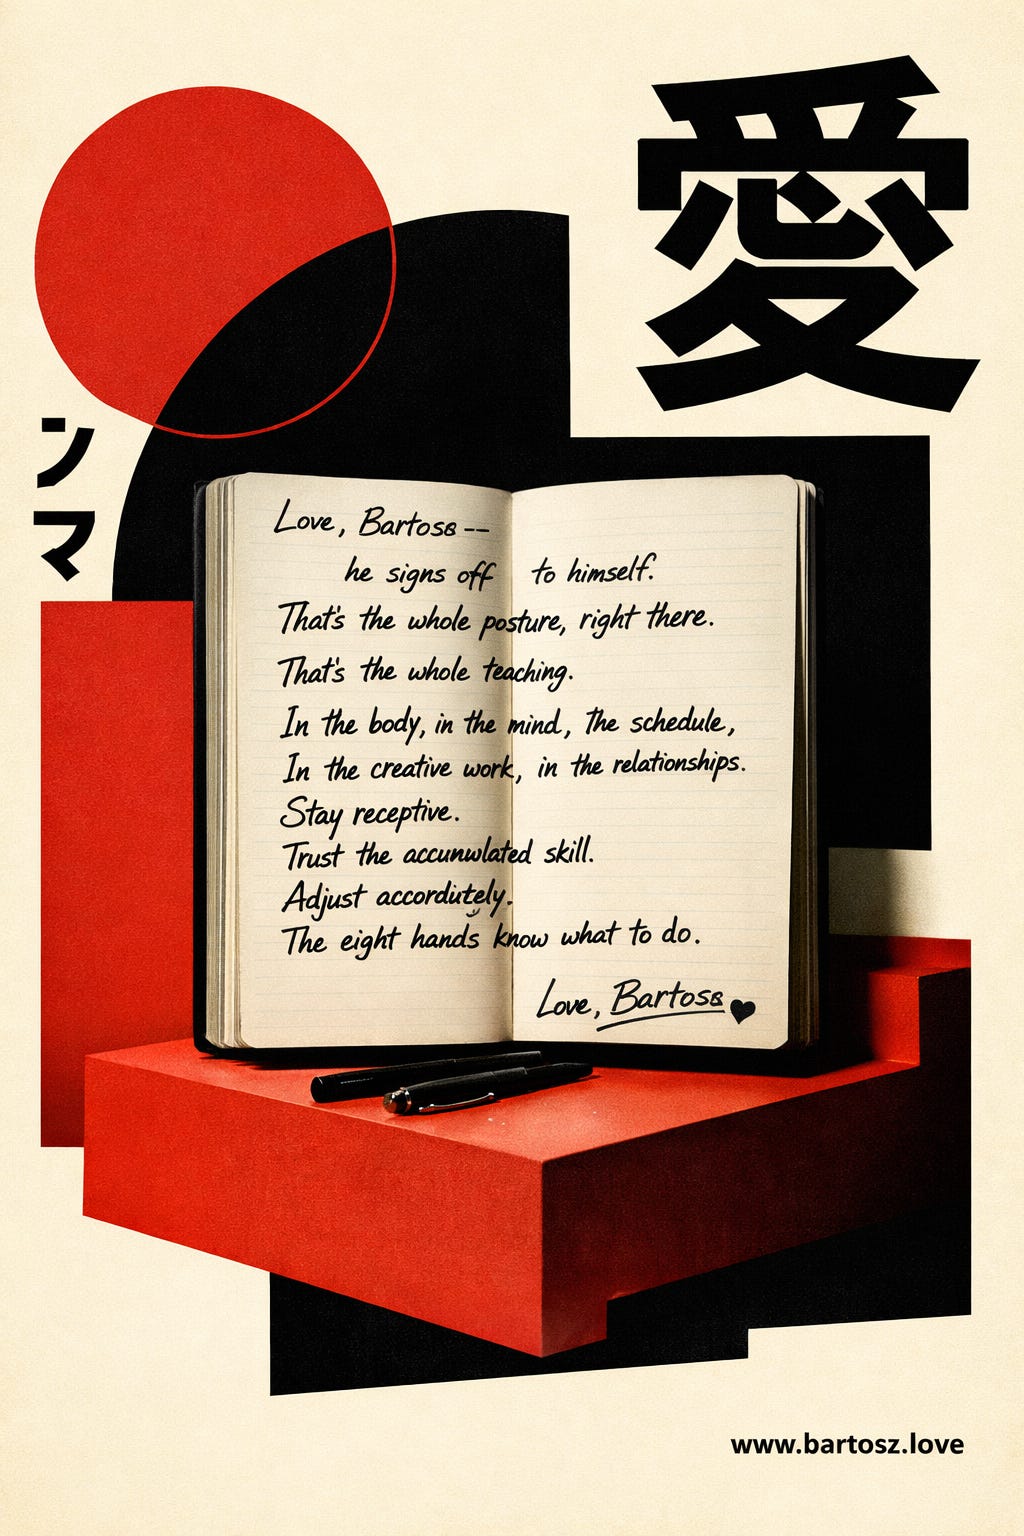 愛
ンマ
Love, Bartosz --
he signs off to himself.
That's the whole posture, right there.
That's the whole teaching.
In the body, in the mind, the schedule,
In the creative work, in the relationships.
Stay receptive.
Trust the accunwlated skill.
Adjust accordiitely.
The eight hands know what to do.
Love, Bartosz
www.bartosz.love